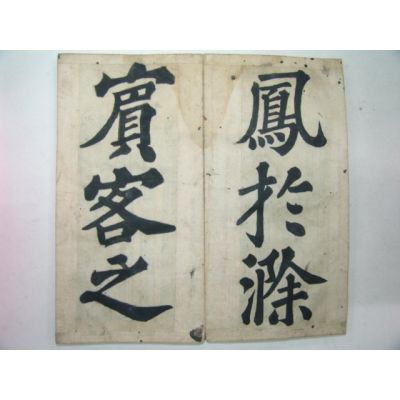 鳳於滁
賓客之